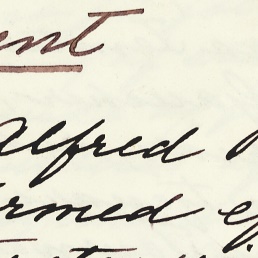 ent
Alfred
rmed ef